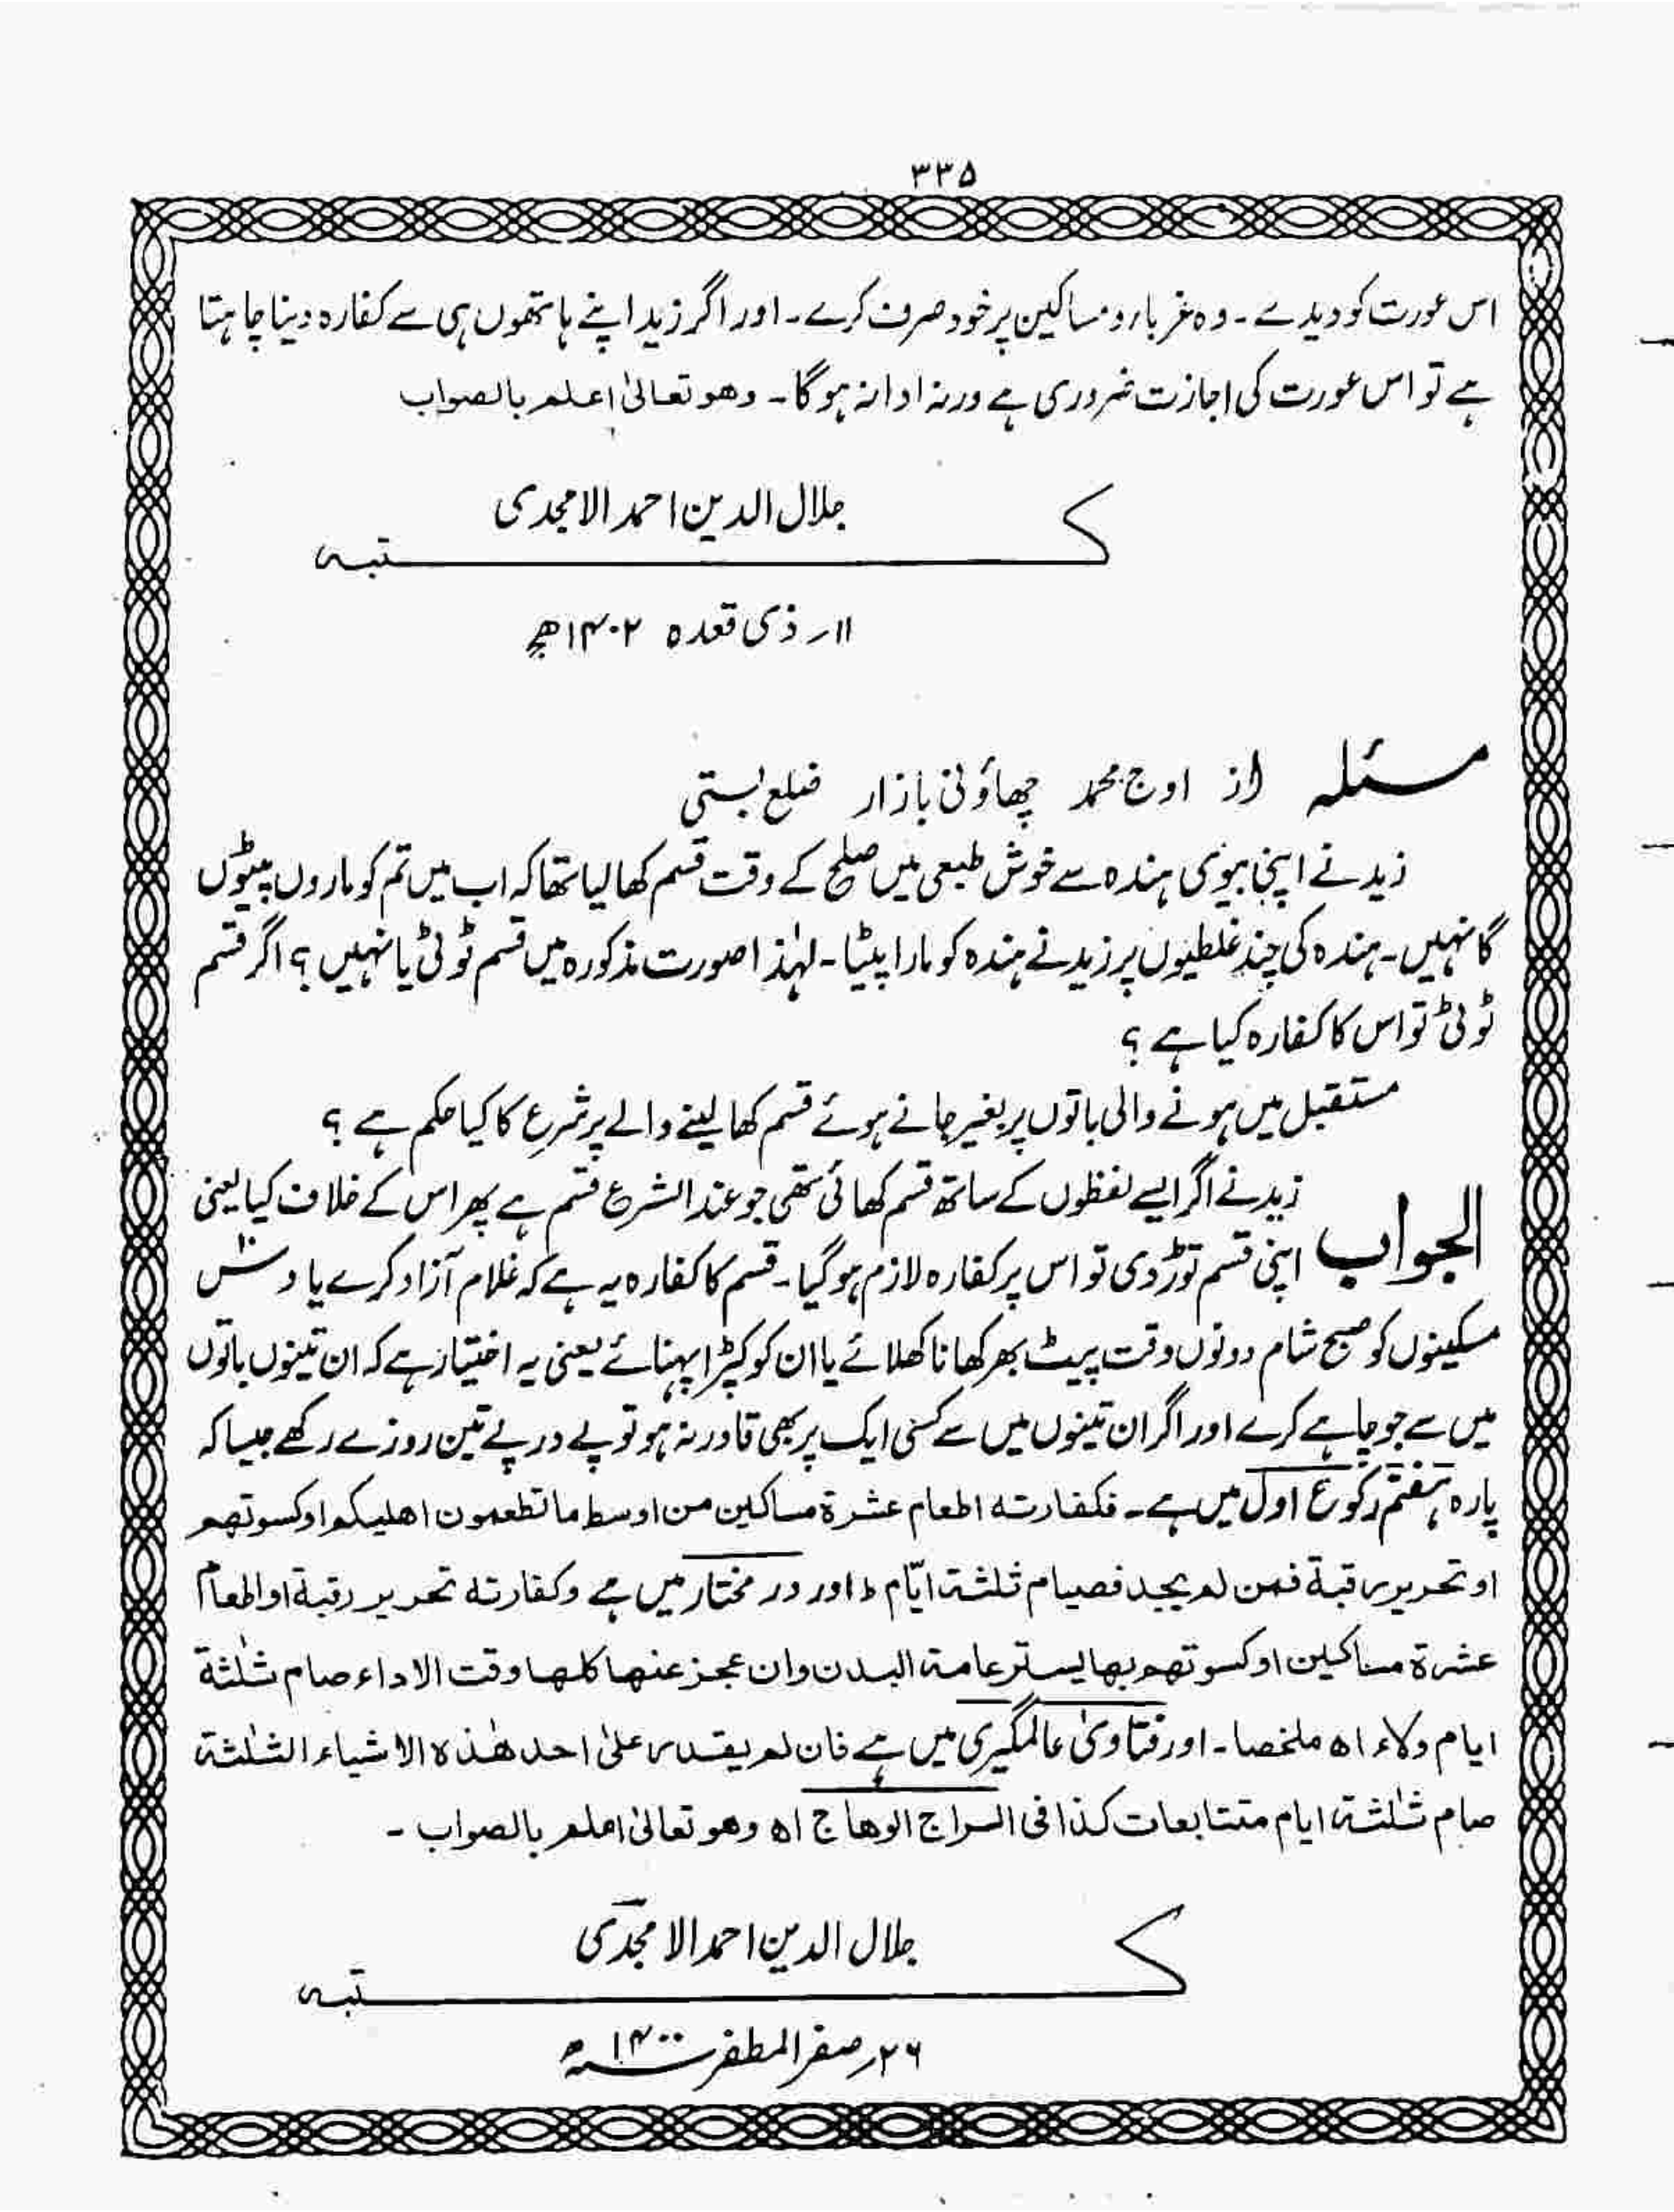 ۳۳۵
اس عورت کو دیدے۔ وہ غرباء و مساکین پر خود صرف کرے۔ اور اگر زید اپنے ہاتھوں ہی سے کفارہ دینا چاہتا
ہے تو اس عورت کی اجازت ضروری ہے ورنہ ادا نہ ہوگا۔ وھو تعالیٰ اعلم بالصواب
جلال الدین احمد الامجدی
کتبہ
۱۱؍ ذی قعدہ ۱۴۰۲ھ
مسئلہ از اوج محمد چھاؤنی بازار ضلع بستی
زید نے اپنی بیوی ہندہ سے خوش طبعی میں صلح کے وقت قسم کھا لیا تھا کہ اب میں تم کو ماروں پیٹوں
گا نہیں۔ ہندہ کی چند غلطیوں پر زید نے ہندہ کو مارا پیٹا۔ لہٰذا صورت مذکورہ میں قسم ٹوٹی یا نہیں؟ اگر قسم
ٹوٹی تو اس کا کفارہ کیا ہے؟
مستقبل میں ہونے والی باتوں پر بغیر جانے ہوئے قسم کھا لینے والے پر شرع کا کیا حکم ہے؟
الجواب زید نے اگر ایسے لفظوں کے ساتھ قسم کھائی تھی جو عند الشرع قسم ہے پھر اس کے خلاف کیا یعنی
اپنی قسم توڑ دی تو اس پر کفارہ لازم ہوگیا۔ قسم کا کفارہ یہ ہے کہ غلام آزاد کرے یا دس۱۰
مسکینوں کو صبح شام دونوں وقت پیٹ بھر کھانا کھلائے یا ان کو کپڑا پہنائے یعنی یہ اختیار ہے کہ ان تینوں باتوں
میں سے جو چاہے کرے اور اگر ان تینوں میں سے کسی ایک پر بھی قادر نہ ہو تو پے در پے تین روزے رکھے جیسا کہ
پارہ ہفتم رکوع اول میں ہے۔ فکفارته اطعام عشرة مساکین من اوسط ما تطعمون اھلیکم او کسوتھم
او تحریر رقبة فمن لم یجد فصیام ثلثة ایّام ط اور در مختار میں ہے وکفارته تحریر رقبة او اطعام
عشرة مساکین او کسوتھم بما یستر عامة البدن وان عجز عنھا کلھا وقت الاداء صام ثلٰثة
ایام ولاء اھ ملخصا۔ اور فتاویٰ عالمگیری میں ہے فان لم یقدر علیٰ احد ھٰذہ الاشیاء الثلٰثة
صام ثلٰثة ایام متتابعات کذا فی السراج الوھاج اھ وھو تعالیٰ اعلم بالصواب۔
جلال الدین احمد الامجدی
کتبہ
۲۶؍ صفر المظفر ۱۴۰۰ھ